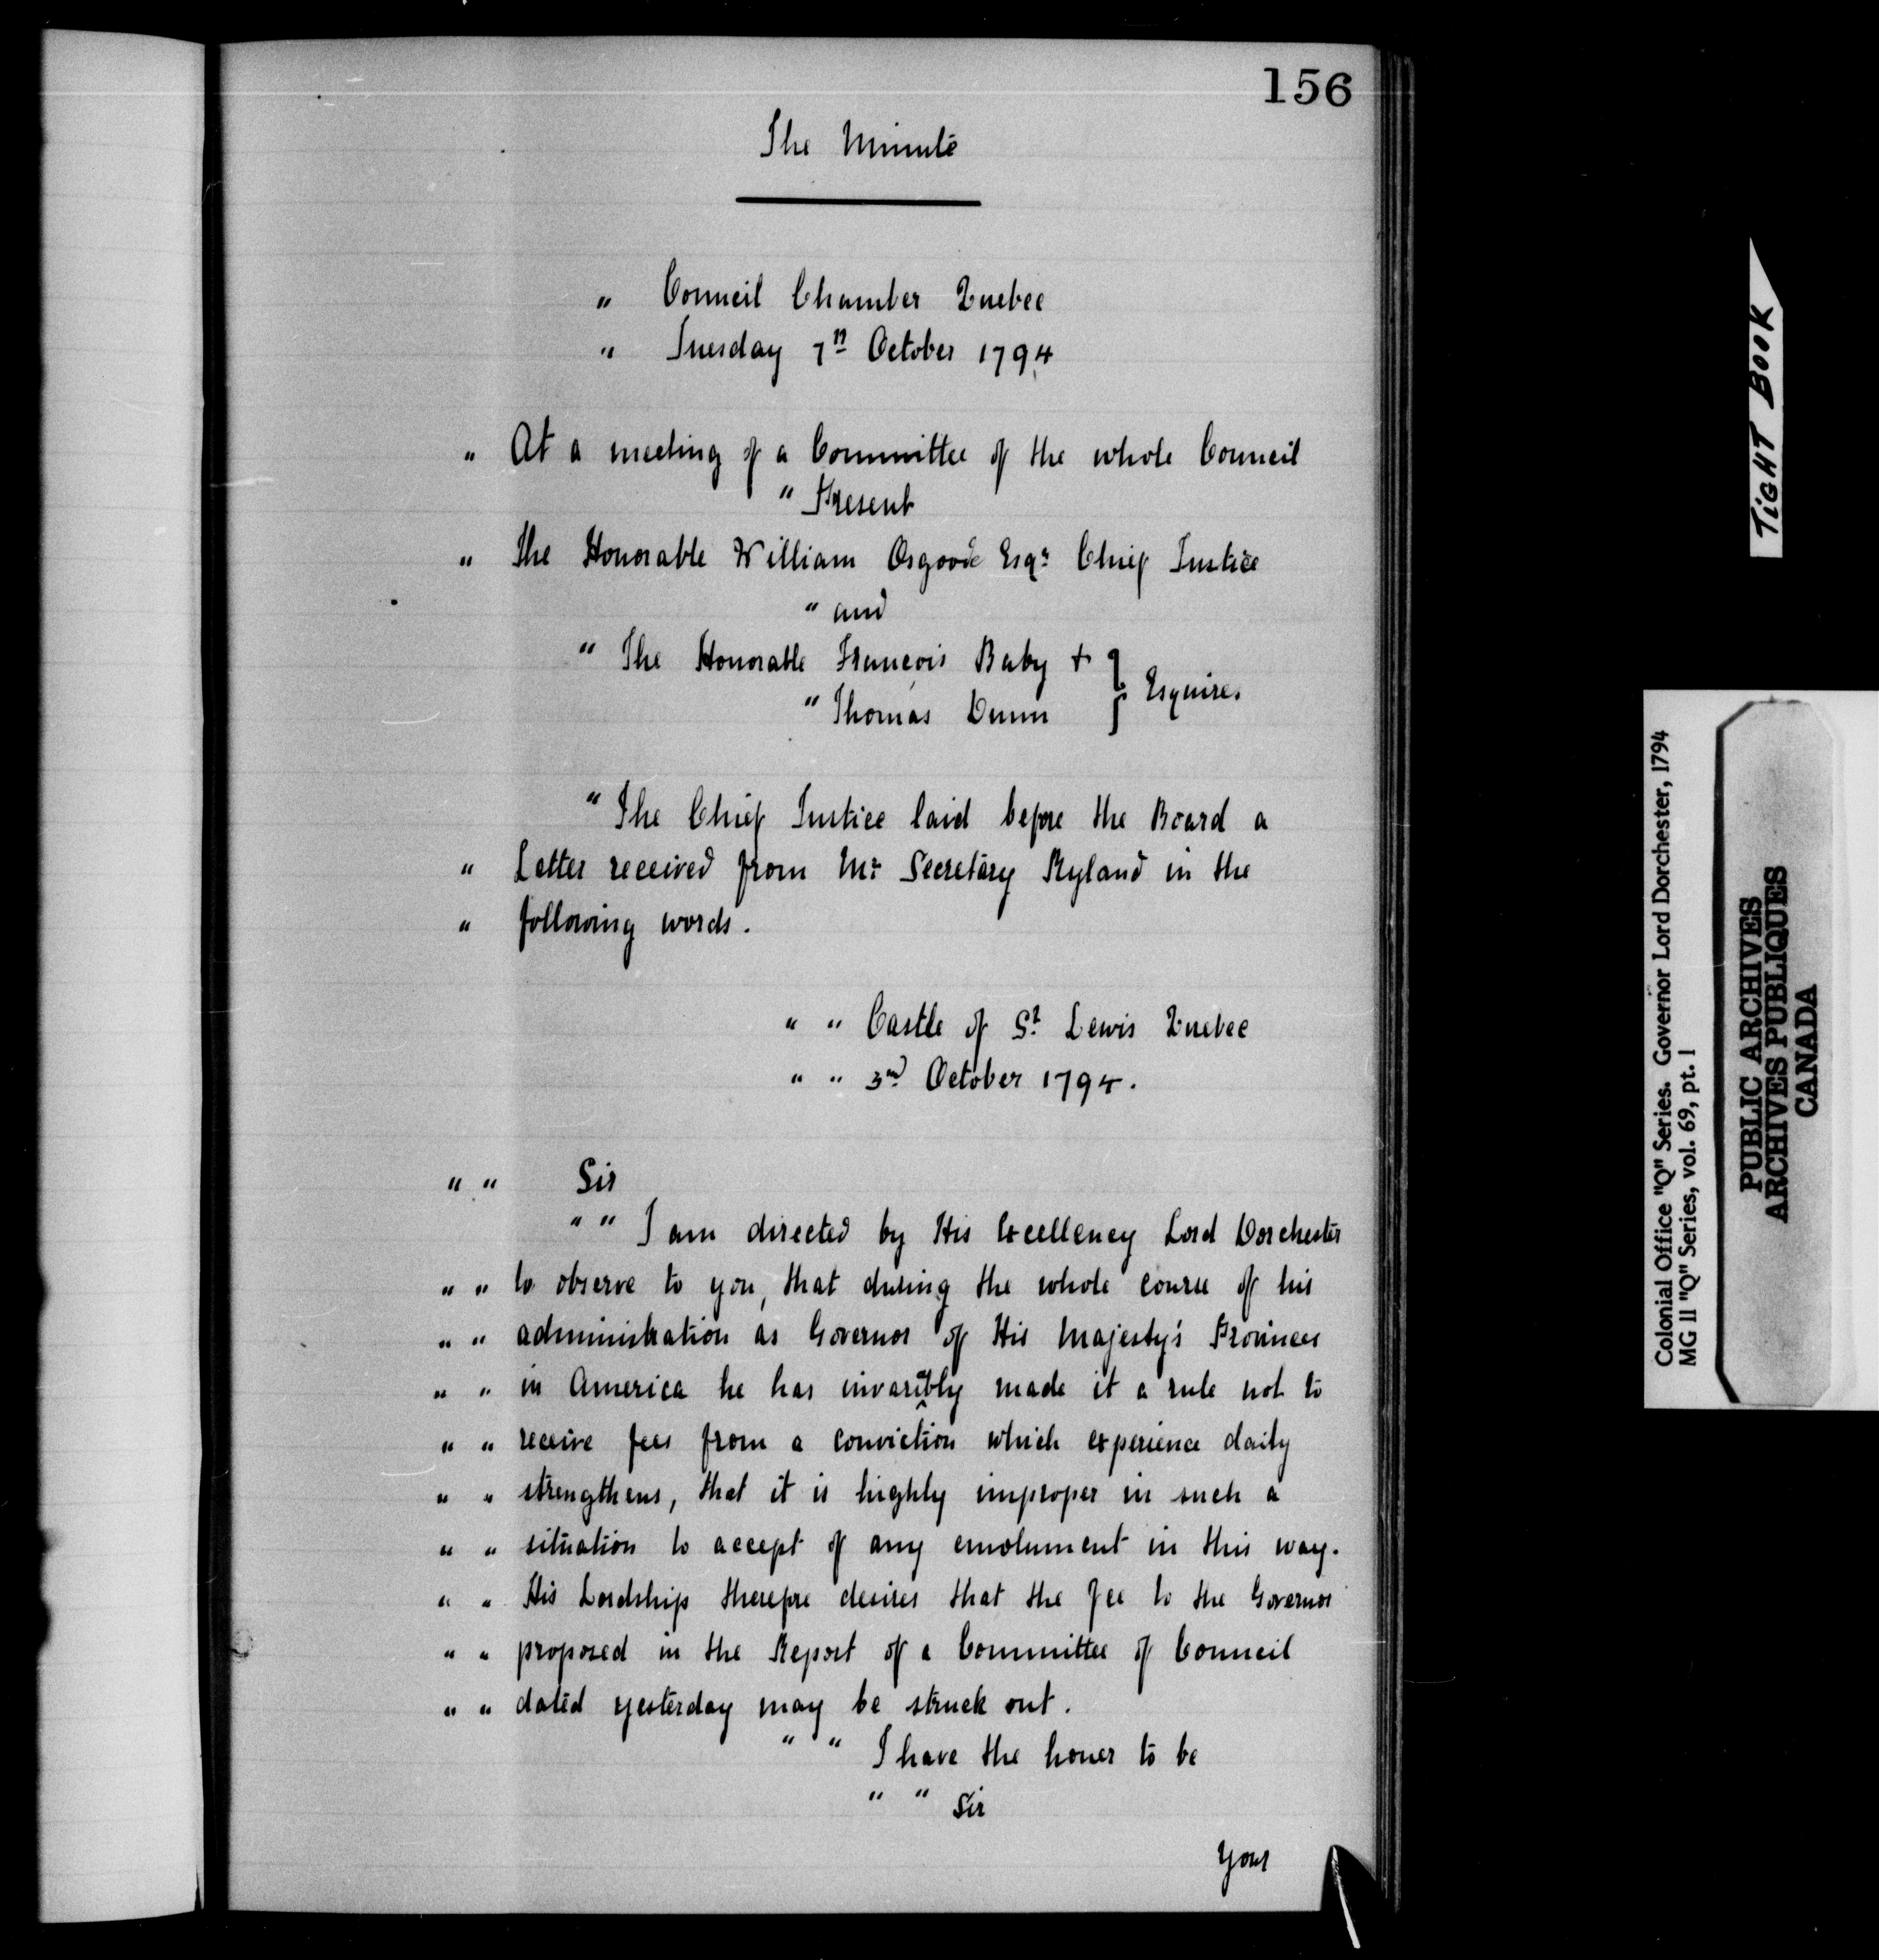 156
The Minute
" Council Chamber Quebec
" Tuesday 7th October 1794
" At a meeting of a Committee of the whole Council
" Present
" The Honorable William Osgoode Esqr Chief Justice
" and
" The Honorable François Baby + } Esquires
" Thomas Dunn
" The Chief Justice laid before the Board a
" Letter received from Mr Secretary Ryland in the
" following words.
" " Castle of St Lewis Quebec
" " 3rd October 1794.
" " Sir
" " I am directed by His Excellency Lord Dorchester
" " to observe to you, that during the whole course of his
" " administration as Governor of His Majesty's Provinces
" " in America he has invariably made it a rule not to
" " receive fees from a conviction which experience daily
" " strengthens, that it is highly improper in such a
" " situation to accept of any emolument in this way.
" " His Lordship therefore desires that the fee to the Governor
" " proposed in the Report of a Committee of Council
" " dated yesterday may be struck out.
" " I have the honer to be
" " Sir
Your
TIGHT BOOK
Colonial Office "Q" Series. Governor Lord Dorchester, 1794
MG 11 "Q" Series, vol. 69, pt. 1
PUBLIC ARCHIVES
ARCHIVES PUBLIQUES
CANADA